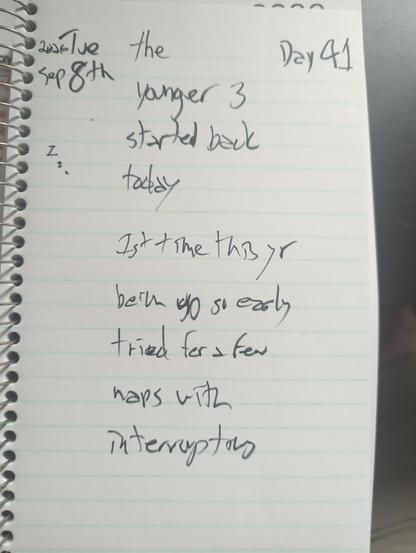 2026 Tue the Day 41
Sep 8th
younger 3
started back
today
1st time this yr
up so early
tried for a few
naps with
interruptons